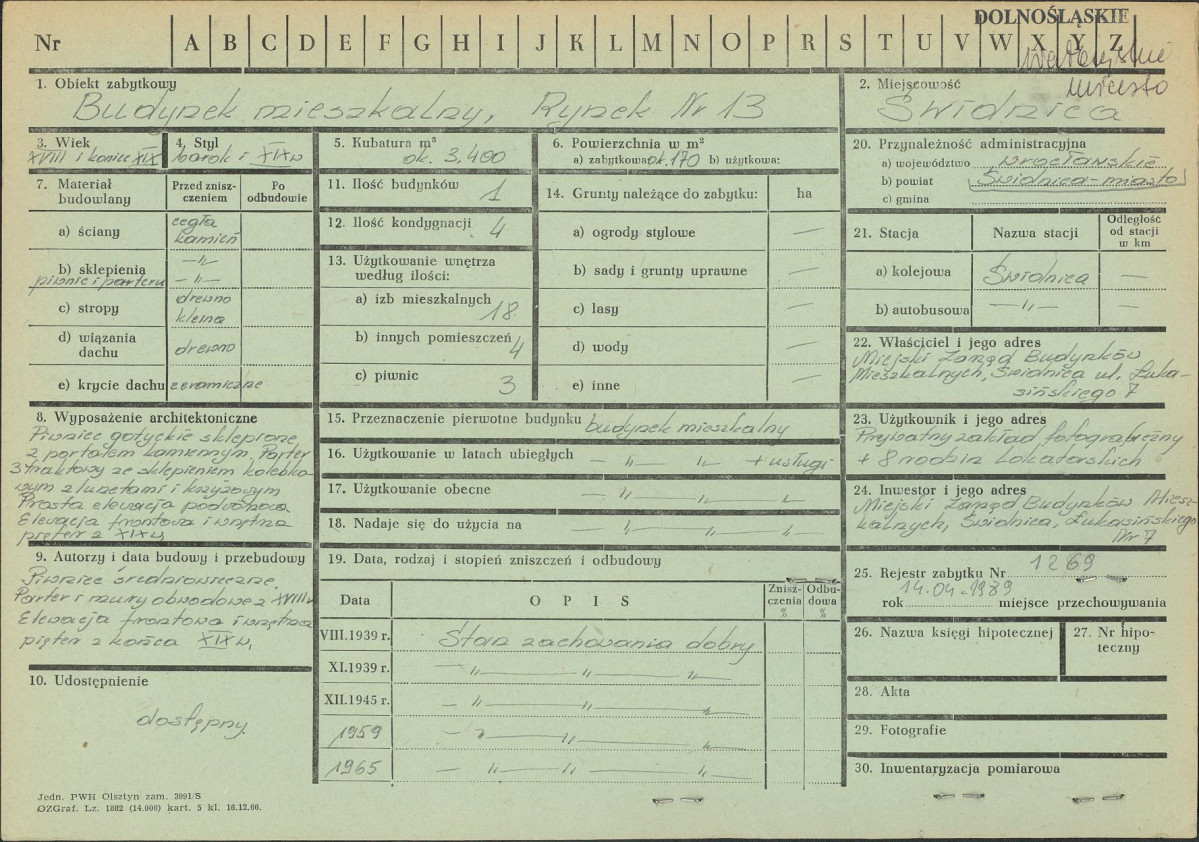 DOLNOŚLĄSKIE
Nr A B C D E F G H I J K L M N O P R S T U V W X Y Z
miasto
1. Obiekt zabytkowy
Budynek mieszkalny, Rynek Nr 13
2. Miejscowość
Świdnica
3. Wiek
XVIII i koniec XIX
4. Styl
barok i XIX w
5. Kubatura m³
ok. 3.400
6. Powierzchnia w m²
a) zabytkowa ok. 170 b) użytkowa:
20. Przynależność administracyjna
a) województwo wrocławskie
b) powiat Świdnica-miasto
c) gmina
7. Materiał budowlany
Przed zniszczeniem
Po odbudowie
a) ściany cegła kamień
b) sklepienia piwnic i parteru —〃— —〃—
c) stropy drewno kleina
d) wiązania dachu drewno
e) krycie dachu ceramiczne
11. Ilość budynków 1
12. Ilość kondygnacji 4
13. Użytkowanie wnętrza
według ilości:
a) izb mieszkalnych 18
b) innych pomieszczeń 4
c) piwnic 3
14. Grunty należące do zabytku: ha
a) ogrody stylowe —
b) sady i grunty uprawne —
c) lasy —
d) wody —
e) inne —
21. Stacja
Nazwa stacji
Odległość
od stacji
w km
a) kolejowa Świdnica —
b) autobusowa —〃— —
22. Właściciel i jego adres
Miejski Zarząd Budynków
Mieszkalnych, Świdnica ul. Łuka-
sińskiego 7
8. Wyposażenie architektoniczne
Piwnice gotyckie sklepione
z portalem kamiennym. Parter
3 traktowy ze sklepieniem kolebko-
wym z lunetami i krzyżowym
Prosta elewacja podwórzowa
Elewacja frontowa i wnętrza
pięter z XIX w,
15. Przeznaczenie pierwotne budynku budynek mieszkalny
16. Użytkowanie w latach ubiegłych —〃— 〃— + usługi
17. Użytkowanie obecne —〃— 〃—
18. Nadaje się do użycia na —〃— 〃—
23. Użytkownik i jego adres
Prywatny zakład fotograficzny
+ 8 rodzin lokatorskich
24. Inwestor i jego adres
Miejski Zarząd Budynków Miesz-
kalnych, Świdnica, Łukasińskiego
Nr 7
9. Autorzy i data budowy i przebudowy
Piwnice średniowieczne.
Parter i mury obwodowe z XVIII w
Elewacja frontowa i wnętrza
pięter z końca XIX w,
19. Data, rodzaj i stopień zniszczeń i odbudowy
Data OPIS
Zniszczenia %
Odbudowa %
VIII.1939 r. Stan zachowania dobry
XI.1939 r. —〃— 〃— 〃—
XII.1945 r. —〃— 〃
1959 —〃— 〃— 〃
1965 —〃— 〃— 〃—
25. Rejestr zabytku Nr 1269
14.04.1989
rok miejsce przechowywania
26. Nazwa księgi hipotecznej
27. Nr hipo-
teczny
28. Akta
29. Fotografie
30. Inwentaryzacja pomiarowa
10. Udostępnienie
dostępny.
Jedn. PWH Olsztyn zam. 3991/S
OZGraf. Lz. 1882 (14.000) kart. 5 kl. 16.12.66.